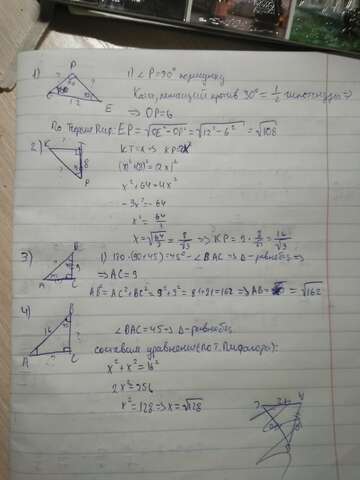 1)
P
E
12
1) ∠P=90°
Катет, лежащий против 30° = 1/2 гипотенузы ⇒
⇒ OP=6
По Теореме Пиф.: EP = √OE²-OP² = √12²-6² = √108
2)
K
T
8
P
KT=x ⇒ KP=2x
(x)²+(8)²=(2x)²
x²+64=4x²
-3x²=-64
x²=64/3
x=√64/3 = 8/√3 ⇒ KP = 2 · 8/√3 = 16/√3
3)
B
9
A
C
1) 180-(90+45)=45°-∠BAC ⇒ Δ-равнобед ⇒
⇒ AC=9
AB²=AC²+BC²=9²+9²=81+81=162 ⇒ AB= =√162
4)
B
16
A
C
∠BAC=45 ⇒ Δ-равнобед
составим уравнение(по т. Пифагора):
x²+x²=16²
2x²=256
x²=128 ⇒ x=√128